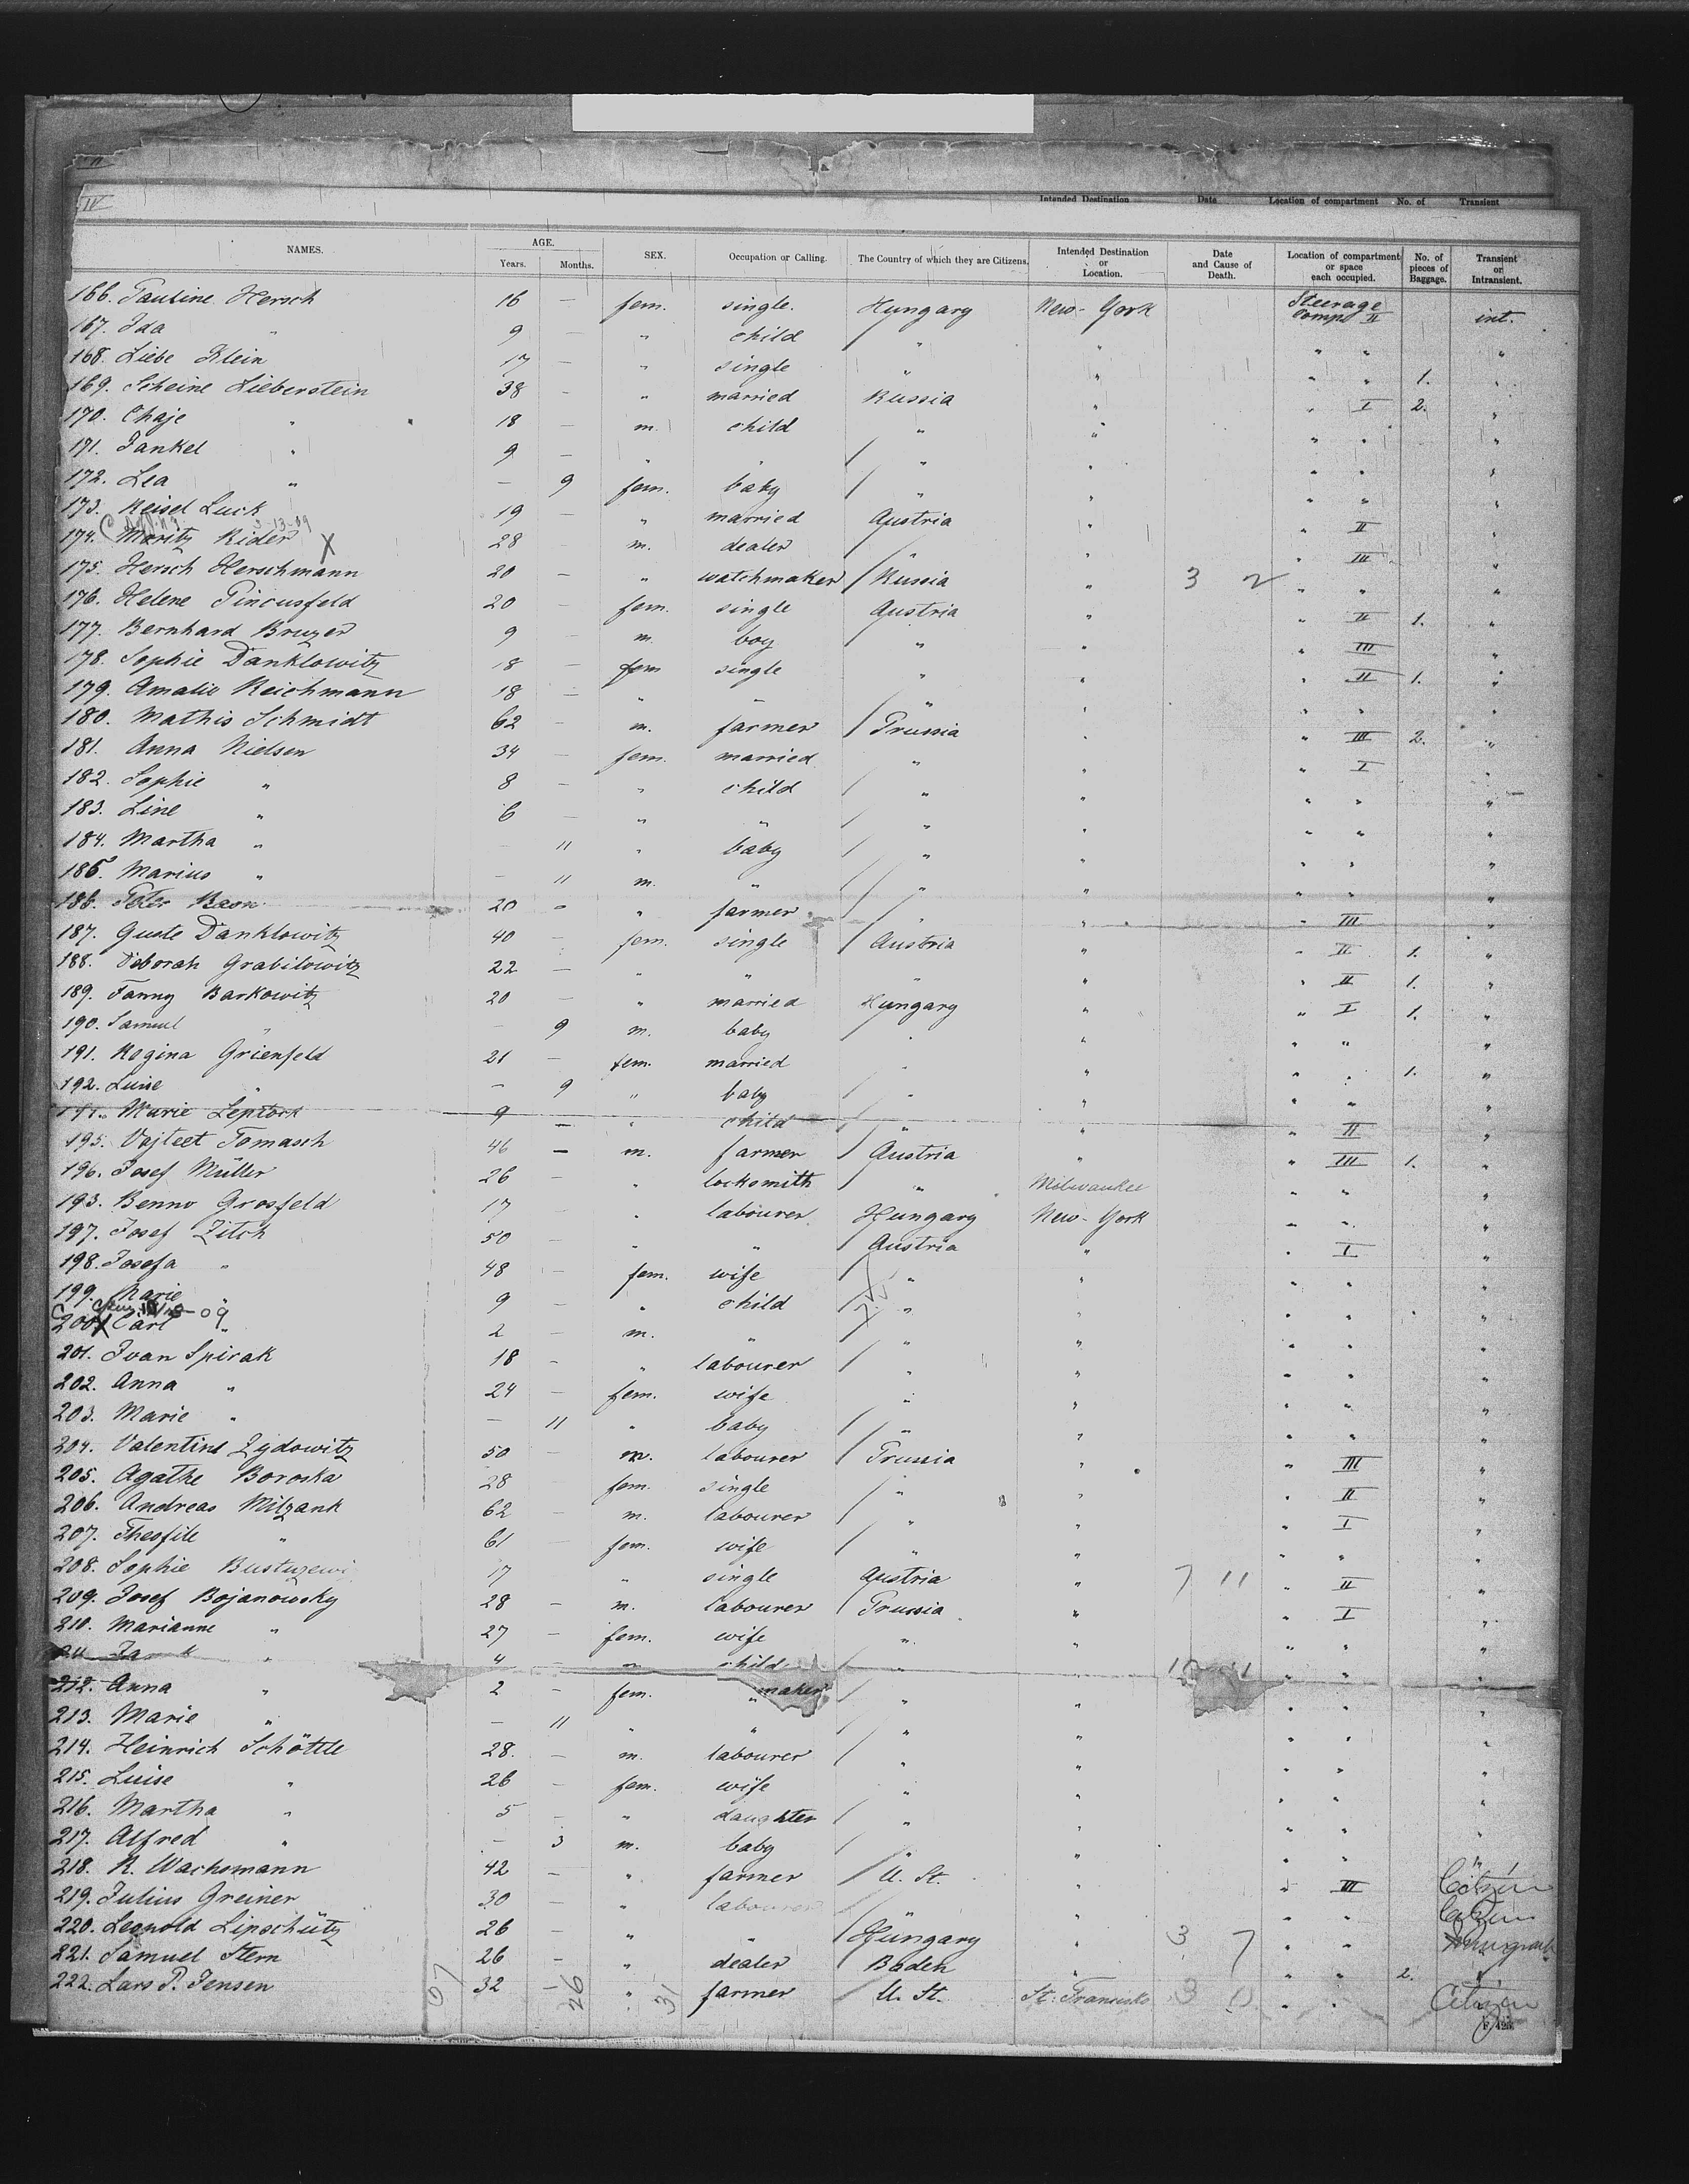 IV
Intended Destination Date Location of compartment No. of Transient
NAMES. AGE. Years. Months. SEX. Occupation or Calling. The Country of which they are Citizens. Intended Destination or Location. Date and Cause of Death. Location of compartment or space each occupied. No. of pieces of Baggage. Transient or Intransient.
166. Pauline Hersch 16 — fem. single. Hungary New-York Steerage Comp. II int.
167. Ida " 9 — " child " " " " "
168. Liebe Klein 17 — " single " " " " 1. "
169. Scheine Lieberstein 38 — " married Russia " " I 2. "
170. Chaje " 18 — m. child " " " " "
171. Jankel " 9 — " " " " " " "
172. Lea " — 9 fem. baby " " " " "
173. Reisel Luck 19 — " married Austria " " II "
3-13-09
174. Moritz Rider X 28 — m. dealer " " " III "
175. Hersch Herschmann 20 — " watchmaker Russia " 3 2 " " "
176. Helene Pincusfeld 20 — fem. single Austria " " II 1. "
177. Bernhard Bruzer 9 — m. boy " " " III "
178. Sophie Danklowitz 18 — fem single " " " II 1. "
179. Amalie Reichmann 18 — " " " " " " "
180. Mathis Schmidt 62 — m. farmer Prussia " " III 2. "
181. Anna Nielsen 34 — fem. married " " " I "
182. Sophie " 8 — " child " " " " "
183. Line " 6 — " " " " " " "
184. Martha " — 11 " baby " " " " "
185. Marius " — 11 m. " " " " " "
186. Peter Baon 20 — " farmer " " " III "
187. Guste Danklowitz 40 — fem. single Austria " " II 1. "
188. Deborah Grabilowitz 22 — " " " " " II 1. "
189. Fanny Barkowitz 20 — " married Hungary " " I 1. "
190. Samuel " — 9 m. baby " " " " "
191. Regina Grienfeld 21 — fem. married " " " " 1. "
192. Luise " — 9 " baby " " " " "
Marie 9 — " child " " " II "
195. Vojteet Tomasch 46 — m. farmer Austria " " III 1. "
196. Josef Müller 26 — " locksmith " Milwaukee " " "
193. Benno Grosfeld 17 — " labourer Hungary New-York " " "
197. Josef Zitch 50 — " " Austria " " I "
198. Josefa " 48 — fem. wife " " " " "
199. Marie " 9 — " child " " " " "
09
200. X Carl " 2 — m. " " " " " "
201. Ivan Spirak 18 — " labourer " " " " "
202. Anna " 24 — fem. wife " " " " "
203. Marie " — 11 " baby " " " " "
204. Valentine Zydowitz 50 — m. labourer Prussia " " III "
205. Agathe Boroska 28 fem. single " " " II "
206. Andreas Milzank 62 — m. labourer " " " I "
207. Theofile " 61 fem. wife " " " " "
208. Sophie 17 " single Austria " 7 11 " II "
209. Josef Bojanowsky 28 — m. labourer Prussia " " I "
210. Marianne " 27 — fem. wife " " " " "
" 4 — " child " " " " "
212. Anna " 2 — fem. " maker " " " " "
213. Marie " — 11 " " " " " " "
214. Heinrich Schöttle 28. — m. labourer " " " " "
215. Luise " 26 — fem. wife " " " " "
216. Martha " 5 — " daughter " " " " "
217. Alfred " — 3 m. baby " " " " "
218. R. Wachsmann 42 — " farmer U. St. " " III Citizen
219. Julius Greiner 30 — " labourer " " " " Citizen
220. Leopold Lipschütz 26 — " " Hungary " 3 7 " "
221. Samuel Stern 26 — " dealer Baden " " " 2. "
222. Lars P. Jensen 32 — " farmer U. St. St. Franzisko 3 11 " " Citizen
67 26 31